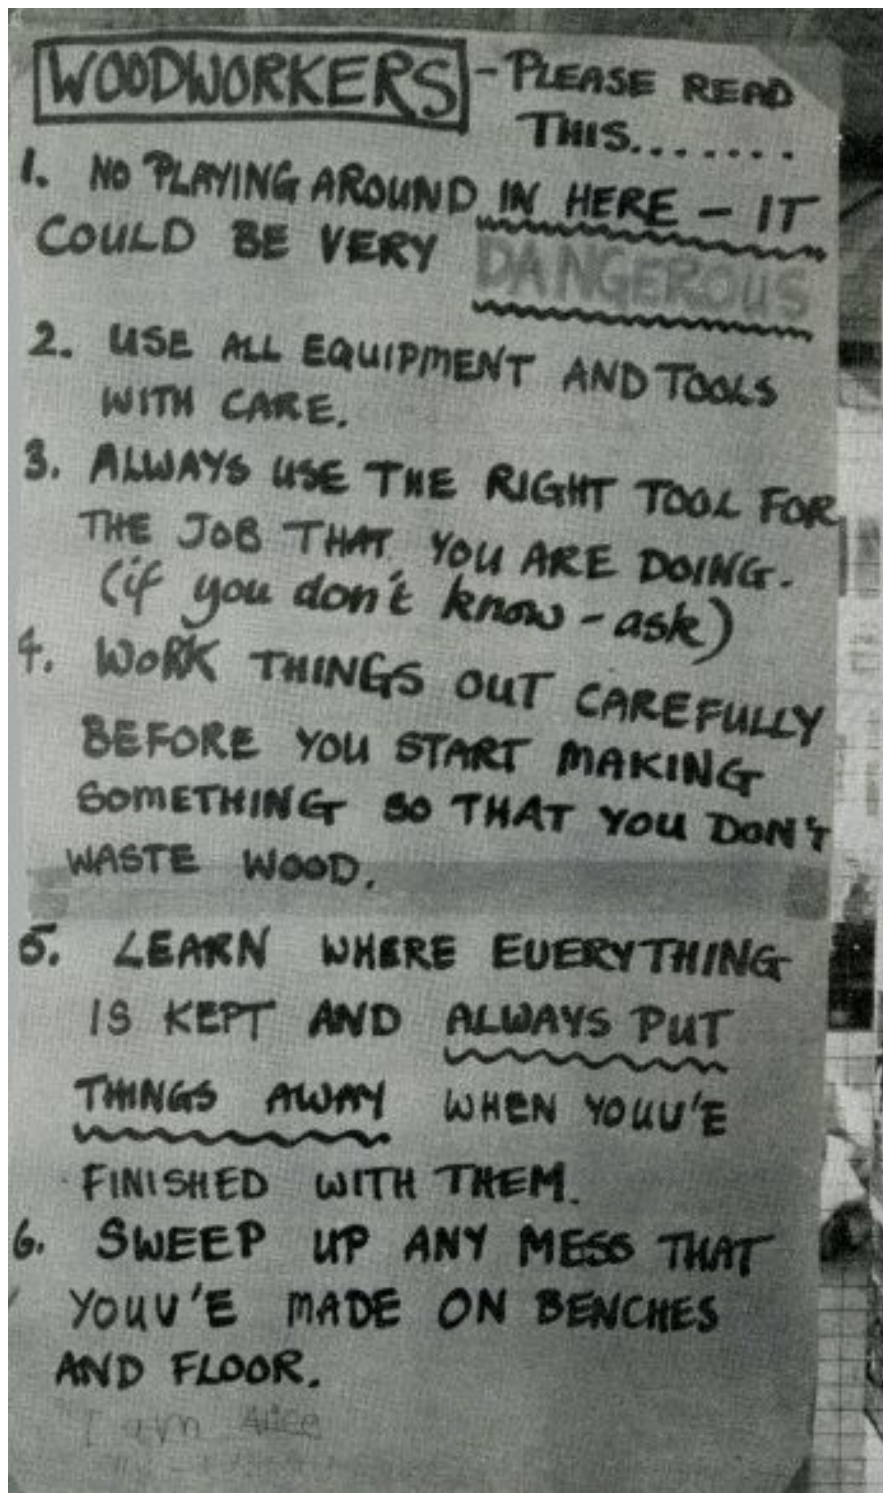 WOODWORKERS - PLEASE READ
THIS.......
1. NO PLAYING AROUND IN HERE - IT
COULD BE VERY DANGEROUS
2. USE ALL EQUIPMENT AND TOOLS
WITH CARE.
3. ALWAYS USE THE RIGHT TOOL FOR
THE JOB THAT YOU ARE DOING.
(if you don't know - ask)
4. WORK THINGS OUT CAREFULLY
BEFORE YOU START MAKING
SOMETHING SO THAT YOU DON'T
WASTE WOOD.
5. LEARN WHERE EVERYTHING
IS KEPT AND ALWAYS PUT
THINGS AWAY WHEN YOUV'E
FINISHED WITH THEM.
6. SWEEP UP ANY MESS THAT
YOUV'E MADE ON BENCHES
AND FLOOR.
I am Alice